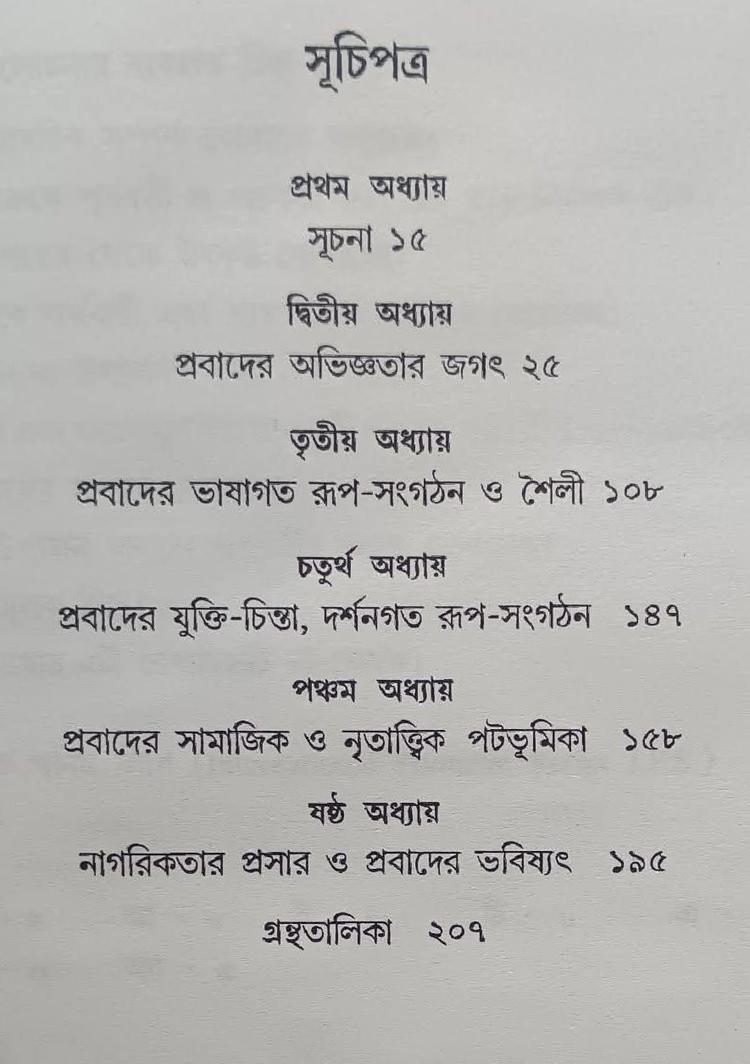 সূচিপত্র
প্রথম অধ্যায়
সূচনা ১৫
দ্বিতীয় অধ্যায়
প্রবাদের অভিজ্ঞতার জগৎ ২৫
তৃতীয় অধ্যায়
প্রবাদের ভাষাগত রূপ-সংগঠন ও শৈলী ১০৮
চতুর্থ অধ্যায়
প্রবাদের যুক্তি-চিন্তা, দর্শনগত রূপ-সংগঠন ১৪৭
পঞ্চম অধ্যায়
প্রবাদের সামাজিক ও নৃতাত্ত্বিক পটভূমিকা ১৫৮
ষষ্ঠ অধ্যায়
নাগরিকতার প্রসার ও প্রবাদের ভবিষ্যৎ ১৯৫
গ্রন্থতালিকা ২০৭